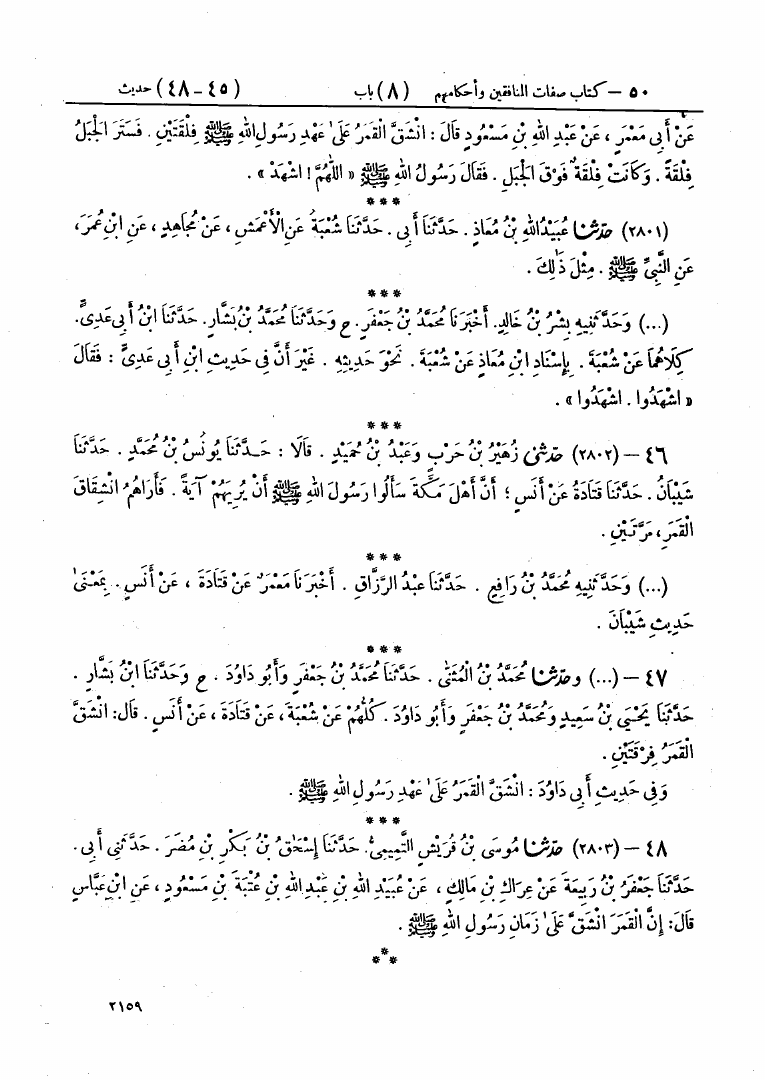 ٥٠ – كتاب صفات المنافقين وأحكامهم (٨) باب (٤٥–٤٨) حديث
عَنْ أَبِي مَعْمَرٍ، عَنْ عَبْدِ اللهِ بْنِ مَسْعُودٍ قَالَ: انْشَقَّ الْقَمَرُ عَلَىٰ عَهْدِ رَسُولِ اللهِ ﷺ فِلْقَتَيْنِ. فَسَتَرَ الْجَبَلُ
فِلْقَةً. وَكَانَتْ فِلْقَةٌ فَوْقَ الْجَبَلِ. فَقَالَ رَسُولُ اللهِ ﷺ « اللّٰهُمَّ! اشْهَدْ ».
***
(٢٨٠١) حَدَّثَنَا عُبَيْدُ اللهِ بْنُ مُعَاذٍ. حَدَّثَنَا أَبِي. حَدَّثَنَا شُعْبَةُ عَنِ الْأَعْمَشِ، عَنْ مُجَاهِدٍ، عَنِ ابْنِ عُمَرَ،
عَنِ النَّبِيِّ ﷺ. مِثْلَ ذَٰلِكَ.
***
(...) وَحَدَّثَنِيهِ بِشْرُ بْنُ خَالِدٍ. أَخْبَرَنَا مُحَمَّدُ بْنُ جَعْفَرٍ. ح وَحَدَّثَنَا مُحَمَّدُ بْنُ بَشَّارٍ. حَدَّثَنَا ابْنُ أَبِي عَدِيٍّ.
كِلَاهُمَا عَنْ شُعْبَةَ. بِإِسْنَادِ ابْنِ مُعَاذٍ عَنْ شُعْبَةَ. نَحْوَ حَدِيثِهِ. غَيْرَ أَنَّ فِي حَدِيثِ ابْنِ أَبِي عَدِيٍّ: فَقَالَ
« اشْهَدُوا. اشْهَدُوا ».
***
٤٦ – (٢٨٠٢) حَدَّثَنِي زُهَيْرُ بْنُ حَرْبٍ وَعَبْدُ بْنُ حُمَيْدٍ. قَالَا: حَدَّثَنَا يُونُسُ بْنُ مُحَمَّدٍ. حَدَّثَنَا
شَيْبَانُ. حَدَّثَنَا قَتَادَةُ عَنْ أَنَسٍ؛ أَنَّ أَهْلَ مَكَّةَ سَأَلُوا رَسُولَ اللهِ ﷺ أَنْ يُرِيَهُمْ آيَةً. فَأَرَاهُمُ انْشِقَاقَ
الْقَمَرِ، مَرَّتَيْنِ.
***
(...) وَحَدَّثَنِيهِ مُحَمَّدُ بْنُ رَافِعٍ. حَدَّثَنَا عَبْدُ الرَّزَّاقِ. أَخْبَرَنَا مَعْمَرٌ عَنْ قَتَادَةَ، عَنْ أَنَسٍ. بِمَعْنَىٰ
حَدِيثِ شَيْبَانَ.
***
٤٧ – (...) وحَدَّثَنَا مُحَمَّدُ بْنُ الْمُثَنَّىٰ. حَدَّثَنَا مُحَمَّدُ بْنُ جَعْفَرٍ وَأَبُو دَاوُدَ. ح وَحَدَّثَنَا ابْنُ بَشَّارٍ.
حَدَّثَنَا يَحْيَىٰ بْنُ سَعِيدٍ وَمُحَمَّدُ بْنُ جَعْفَرٍ وَأَبُو دَاوُدَ. كُلُّهُمْ عَنْ شُعْبَةَ، عَنْ قَتَادَةَ، عَنْ أَنَسٍ. قَالَ: انْشَقَّ
الْقَمَرُ فِرْقَتَيْنِ.
وَفِي حَدِيثِ أَبِي دَاوُدَ: انْشَقَّ الْقَمَرُ عَلَىٰ عَهْدِ رَسُولِ اللهِ ﷺ.
***
٤٨ – (٢٨٠٣) حَدَّثَنَا مُوسَى بْنُ قُرَيْشٍ التَّمِيمِيُّ. حَدَّثَنَا إِسْحَٰقُ بْنُ بَكْرِ بْنِ مُضَرَ. حَدَّثَنِي أَبِي.
حَدَّثَنَا جَعْفَرُ بْنُ رَبِيعَةَ عَنْ عِرَاكِ بْنِ مَالِكٍ، عَنْ عُبَيْدِ اللهِ بْنِ عَبْدِ اللهِ بْنِ عُتْبَةَ بْنِ مَسْعُودٍ، عَنِ ابْنِ عَبَّاسٍ
قَالَ: إِنَّ الْقَمَرَ انْشَقَّ عَلَىٰ زَمَانِ رَسُولِ اللهِ ﷺ.
***
٢١٥٩